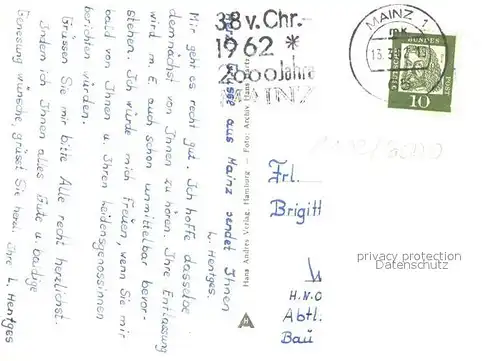 Herzl. Grüsse aus Mainz sendet Ihnen
L. Hentges.
Mir geht es recht gut. Ich hoffe dasselbe
demnächst von Ihnen zu hören. Ihre Entlassung
wird m. E. auch schon unmittelbar bevor-
stehen. Ich würde mich freuen, wenn Sie mir
bald von Ihnen u. Ihren Leidensgenossinnen
berichten würden.
Grüssen Sie mir bitte Alle recht herzlichst.
Indem ich Ihnen alles Gute u. baldige
Genesung wünsche, grüsst Sie herzl. Ihre L. Hentges
38 v. Chr.-
1962 *
2000 Jahre
MAINZ
MAINZ 1
mk
13.3.
DEUTSCHE BUNDESPOST
10
Hans Andres Verlag, Hamburg – Foto: Archiv Hans
Frl.
Brigitt
H.N.O
Abtl.
Bau
privacy protection
Datenschutz